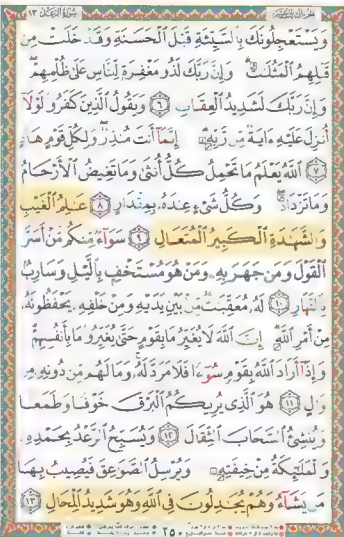 سورة الرعد ١٣
وَيَسْتَعْجِلُونَكَ بِالسَّيِّئَةِ قَبْلَ الْحَسَنَةِ وَقَدْ خَلَتْ مِن
قَبْلِهِمُ الْمَثُلَاتُ ۗ وَإِنَّ رَبَّكَ لَذُو مَغْفِرَةٍ لِّلنَّاسِ عَلَىٰ ظُلْمِهِمْ ۖ
وَإِنَّ رَبَّكَ لَشَدِيدُ الْعِقَابِ ٦ وَيَقُولُ الَّذِينَ كَفَرُوا لَوْلَا
أُنزِلَ عَلَيْهِ ءَايَةٌ مِّن رَّبِّهِ ۗ إِنَّمَا أَنتَ مُنذِرٌ ۖ وَلِكُلِّ قَوْمٍ هَادٍ
٧ اللَّهُ يَعْلَمُ مَا تَحْمِلُ كُلُّ أُنثَىٰ وَمَا تَغِيضُ الْأَرْحَامُ
وَمَا تَزْدَادُ ۖ وَكُلُّ شَيْءٍ عِندَهُ بِمِقْدَارٍ ٨ عَالِمُ الْغَيْبِ
وَالشَّهَادَةِ الْكَبِيرُ الْمُتَعَالِ ٩ سَوَاءٌ مِّنكُم مَّنْ أَسَرَّ
الْقَوْلَ وَمَن جَهَرَ بِهِ وَمَنْ هُوَ مُسْتَخْفٍ بِاللَّيْلِ وَسَارِبٌ
بِالنَّهَارِ ١٠ لَهُ مُعَقِّبَاتٌ مِّن بَيْنِ يَدَيْهِ وَمِنْ خَلْفِهِ يَحْفَظُونَهُ
مِنْ أَمْرِ اللَّهِ ۗ إِنَّ اللَّهَ لَا يُغَيِّرُ مَا بِقَوْمٍ حَتَّىٰ يُغَيِّرُوا مَا بِأَنفُسِهِمْ ۗ
وَإِذَا أَرَادَ اللَّهُ بِقَوْمٍ سُوءًا فَلَا مَرَدَّ لَهُ ۚ وَمَا لَهُم مِّن دُونِهِ مِن
وَالٍ ١١ هُوَ الَّذِي يُرِيكُمُ الْبَرْقَ خَوْفًا وَطَمَعًا
وَيُنشِئُ السَّحَابَ الثِّقَالَ ١٢ وَيُسَبِّحُ الرَّعْدُ بِحَمْدِهِ
وَالْمَلَائِكَةُ مِنْ خِيفَتِهِ وَيُرْسِلُ الصَّوَاعِقَ فَيُصِيبُ بِهَا
مَن يَشَاءُ وَهُمْ يُجَادِلُونَ فِي اللَّهِ وَهُوَ شَدِيدُ الْمِحَالِ ١٣
٢٥٠